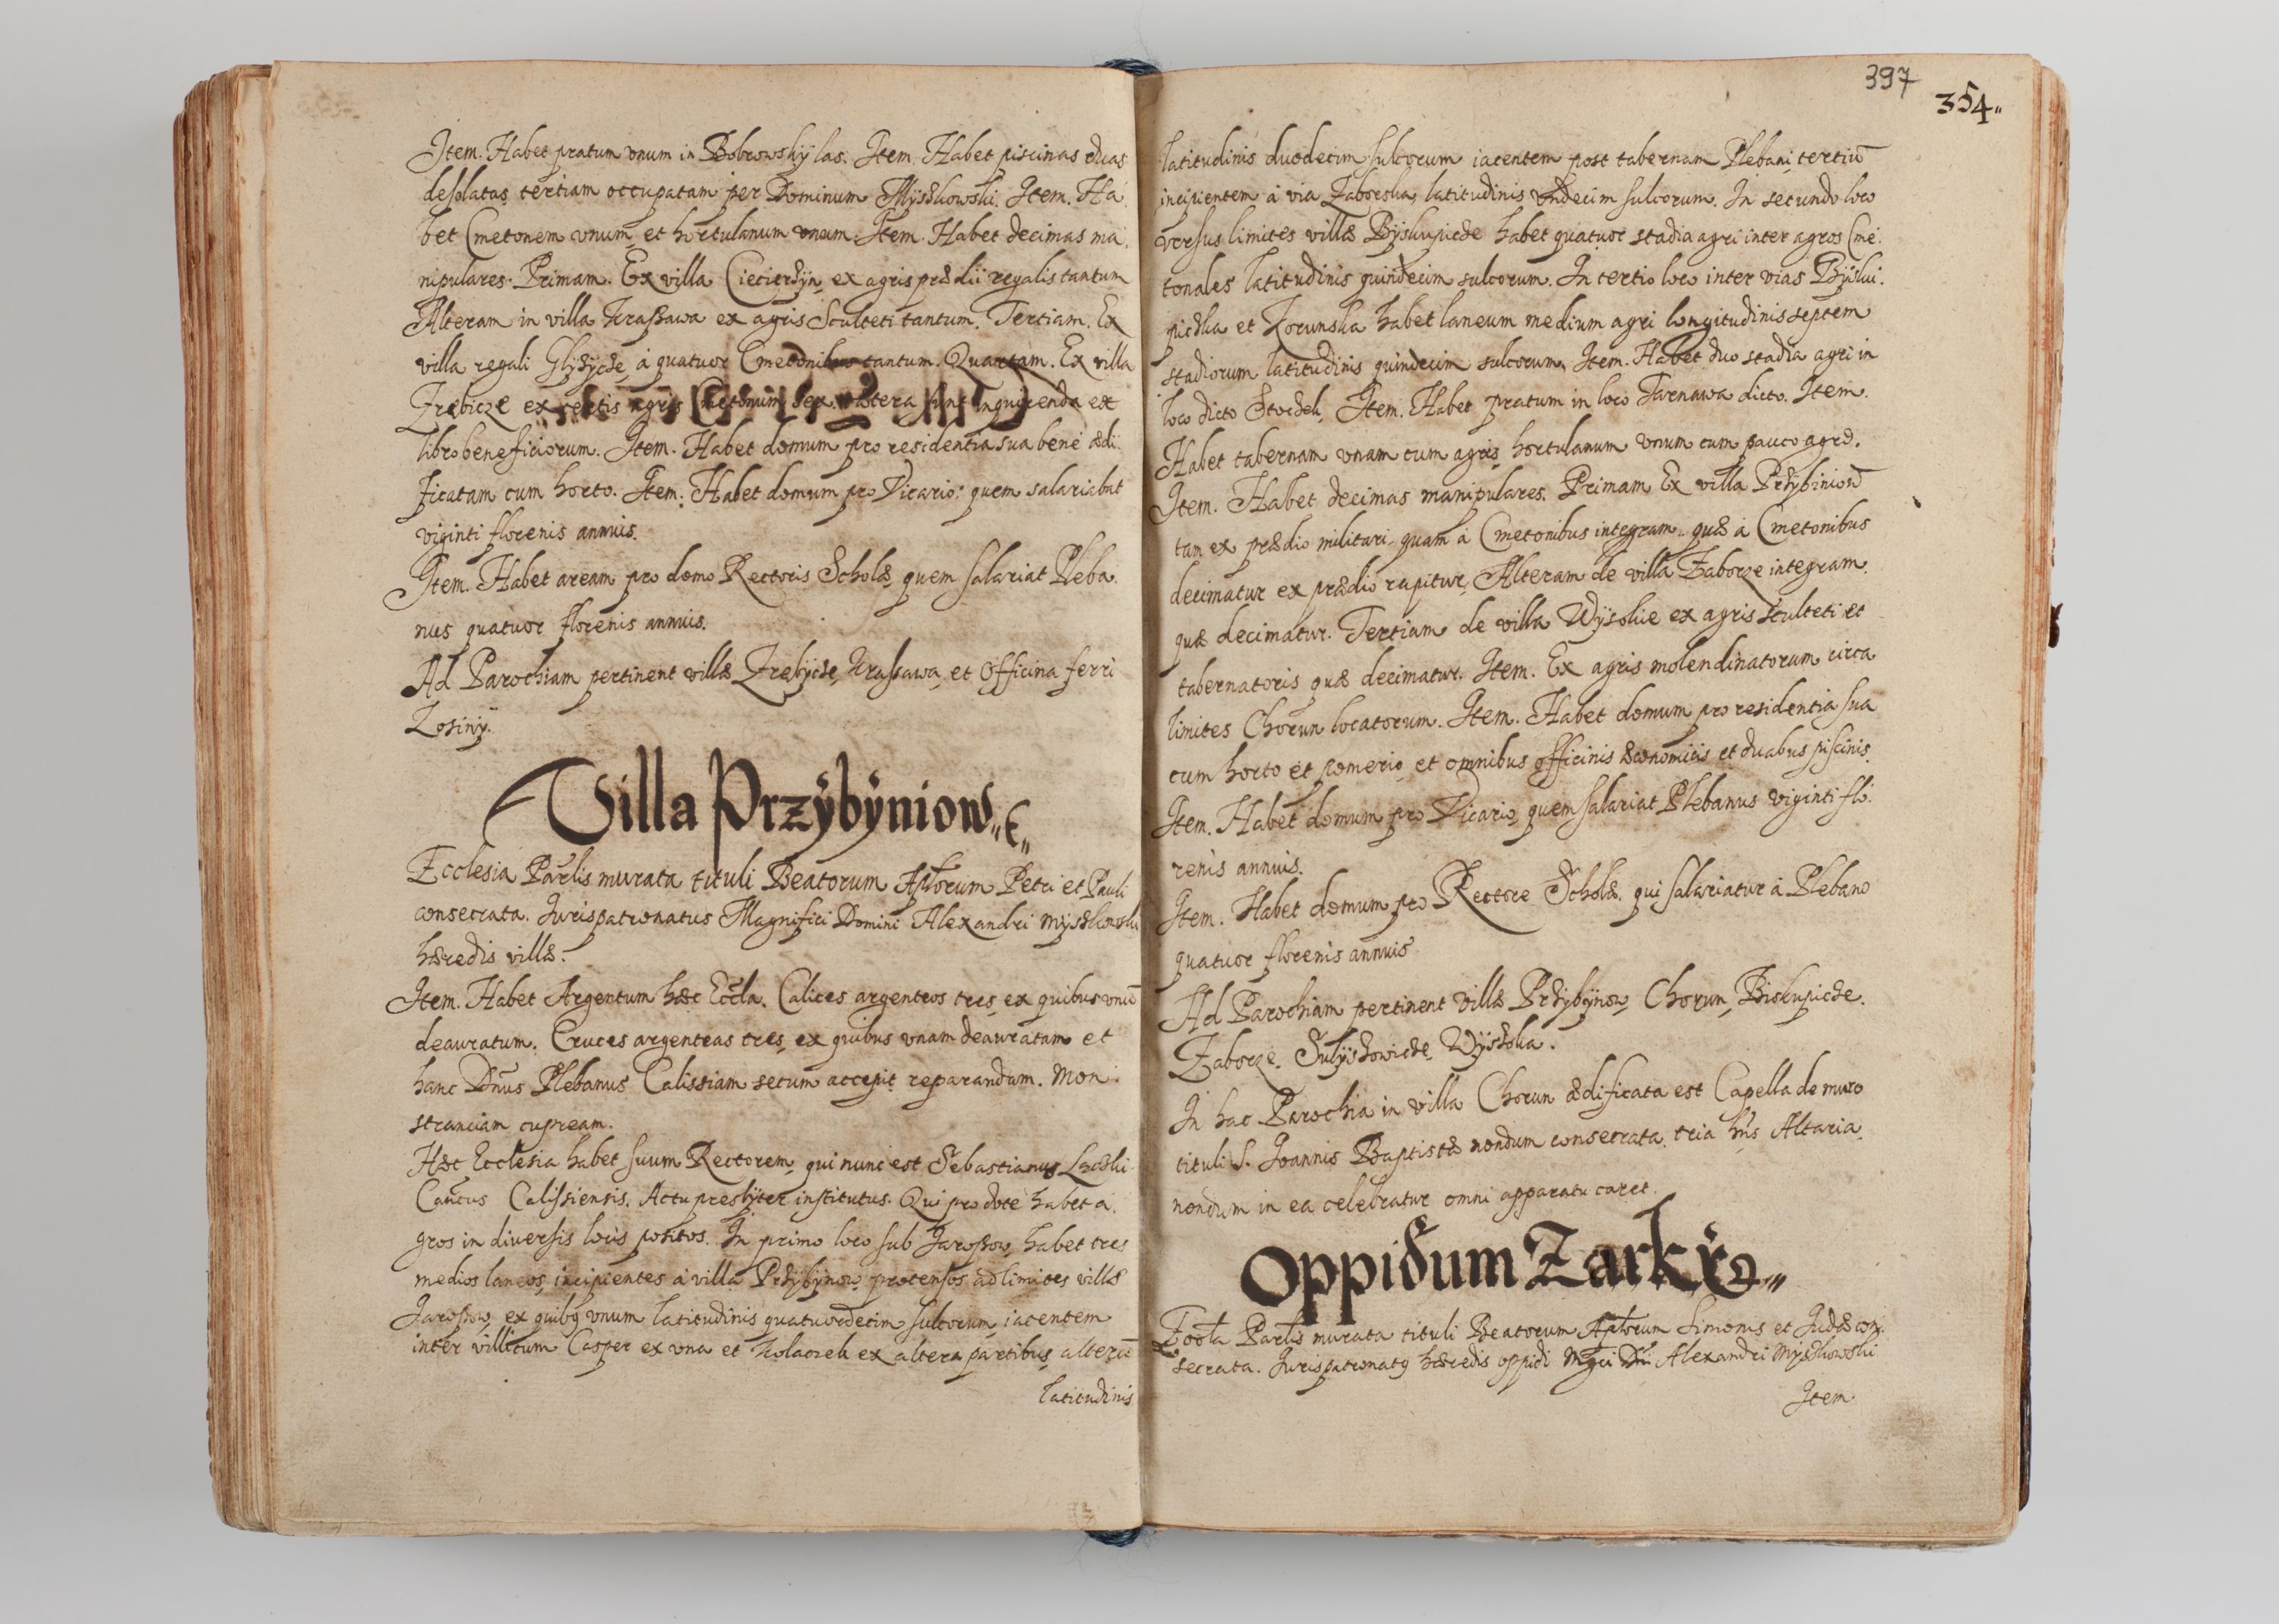 Item. Habet pratum vnum in Bobrowskÿ las. Item. Habet piscinas duas
desolatas tertiam occupatam per Dominum Mÿszkowski. Item. Ha
bet Cmetonem vnum, et hortulanum vnum. Item. Habet decimas ma
nipulares. Primam. Ex villa ex agris prædii regalis tantum
Alteram in villa Kraßawa ex agris Sculteti tantum. Tertiam. Ex
villa regali à quatuor Cmetonibus tantum. Quartam. Ex villa
Zrebicze ex certis agris Cmetonum sex. inquirenda ex
libro beneficiorum. Item. Habet domum pro residentia sua bene ædi
ficatam cum horto. Item. Habet domum pro Vicario: quem salariabat
viginti florenis annuis.
Item. Habet aream pro domo Rectoris Scholæ, quem salariat Pleba
nus quatuor florenis annuis.
Ad Parochiam pertinent villæ Zrebÿcze, Krassawa, et officina ferri
Zosinÿ.
Villa Przÿbÿniow
Ecclesia Parlis murata tituli Beatorum Aplorum Petri et Pauli
consecrata. Iurispatronatus Magnifici Domini Alexandri Mÿszkowski
hæredis villæ.
Item. Habet Argentum hæc Eccla. Calices argenteos tres, ex quibus vnū
deauratum. Cruces argenteas tres, ex quibus vnam deauratam et
hanc Dnus Plebanus Calissiam secum accepit reparandam. Mon
stranciam cupream.
Hæc Ecclesia habet suum Rectorem, qui nunc est Sebastianus
Cancus Calissiensis. Actu presbÿter institutus. Qui pro dote habet a
gros in diversis locis positos. In primo loco sub Jaroßow, habet tres
medios laneos, incipientes à villa Przÿbÿnow, protensos ad limites villæ
Jaroßow, ex quibꝫ vnum latitudinis quatuordecim sulcorum, iacentem
inter villicum Casper ex vna et Kolaczek ex altera partibus, alterū
latitudinis
397
354
latitudinis duodecim sulcorum iacentem post tabernam Plebani, tertiū
incipientem à via Zaborska, latitudinis vndecim sulcorum. In secundo loco
versus limites villæ Bÿskupicze habet quatuor stadia agri inter agros Cme
tonales latitudinis quindecim sulcorum. In tertio loco inter vias Bÿsku
piczka et Korunska habet laneum medium agri longitudinis septem
stadiorum latitudinis quindecim sulcorum. Item. Habet duo stadia agri in
loco dicto Stoczek. Item. Habet pratum in loco Tarnawa dicto. Item.
Habet tabernam vnam cum agris, hortulanum vnum cum pauco agro.
Item. Habet decimas manipulares. Primam Ex villa
tam ex prædio militari quam à Cmetonibus integram. quæ à Cmetonibus
decimatur ex prædio rapitur, Alteram de villa Zaborze integram
quæ decimatur. Tertiam de villa Wÿsokie ex agris sculteti et
tabernatoris quæ decimatur. Item. Ex agris molendinatorum circa
limites Chorun locatorum. Item. Habet domum pro residentia sua
cum horto et pomerio, et omnibus officinis œconomicis et duabus piscinis.
Item. Habet domum pro Vicario, quem salariat Plebanus viginti flo
renis annuis.
Item. Habet domum pro Rectore Scholæ, qui salariatur à Plebano
quatuor florenis annuis
Ad Parochiam pertinent villæ Przÿbÿnow, Chorun, Biskupicze.
Zaborze. Sulÿszowicze, Wÿszoka.
In hac Parochia in villa Chorun ædificata est Capella de muro
tituli S. Joannis Baptistæ nondum consecrata, tria hns Altaria
nondum in ea celebratur omni apparatu caret.
Oppidum Zarkÿ
Eccla Parlis murata tituli Beatorum Aplorum Simonis et Judæ con
secrata. Iurispatronatꝫ hæredis oppidi Mgci Dni Alexandri Mÿszkowski
Item